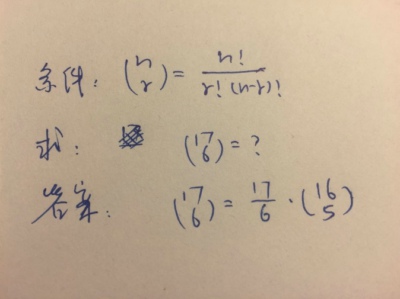 条件: (n r) = n! / r!(n-r)!
求: (17 6) = ?
答案: (17 6) = 17/6 · (16 5)